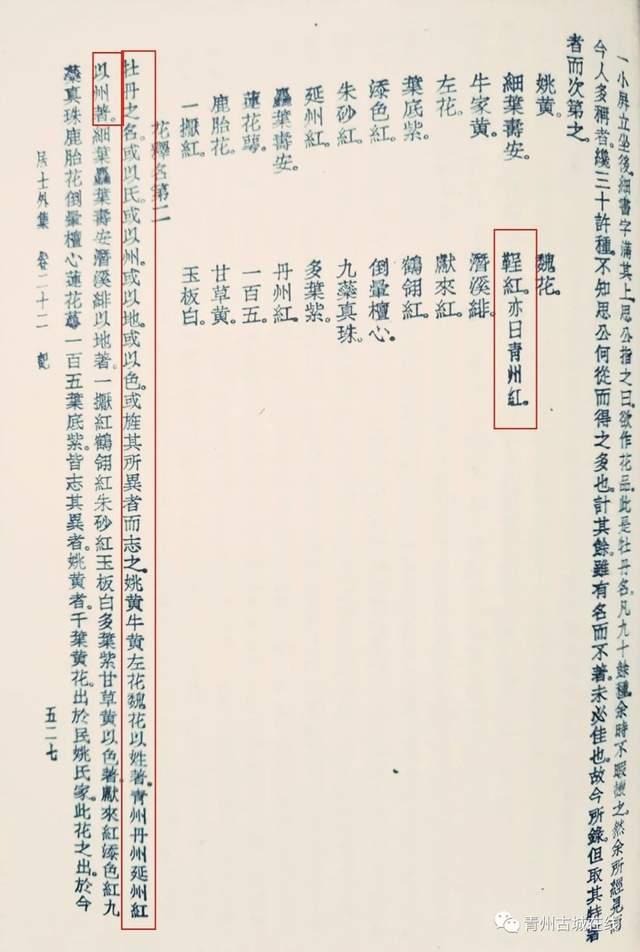 一小屏立坐後。細書字滿其上。思公指之曰。欲作花品。此是牡丹名。凡九十餘種。余時不暇之。然余所經見
今人多稱者。纔三十許種。不知思公何從而得之多也。計其餘。雖有名而不著。未必佳也。故今所錄。但取其特著
者而次第之。
姚黃。 魏花。
細葉壽安。 鞓紅。亦曰青州紅。
牛家黃。 潛溪緋。
左花。 獻來紅。
葉底紫。 鶴翎紅。
添色紅。 倒暈檀心。
朱砂紅。 九蘂真珠。
延州紅。 多葉紫。
麤葉壽安。 丹州紅。
蓮花萼。 一百五。
鹿胎花。 甘草黃。
一擫紅。 玉板白。
花釋名第二
牡丹之名。或以氏。或以州。或以地。或以色。或旌其所異者而志之。姚黃牛黃左花魏花以姓著。青州丹州延州紅
以州著。細葉麤葉壽安潛溪緋以地著。一擫紅鶴翎紅朱砂紅玉板白多葉紫甘草黃以色著。獻來紅添色紅九
蘂真珠鹿胎花倒暈檀心蓮花萼一百五葉底紫。皆志其異者。姚黃者。千葉黃花。出於民姚氏家。此花之出。於今
居士外集 卷二十二 記
五二七
青州古城在线